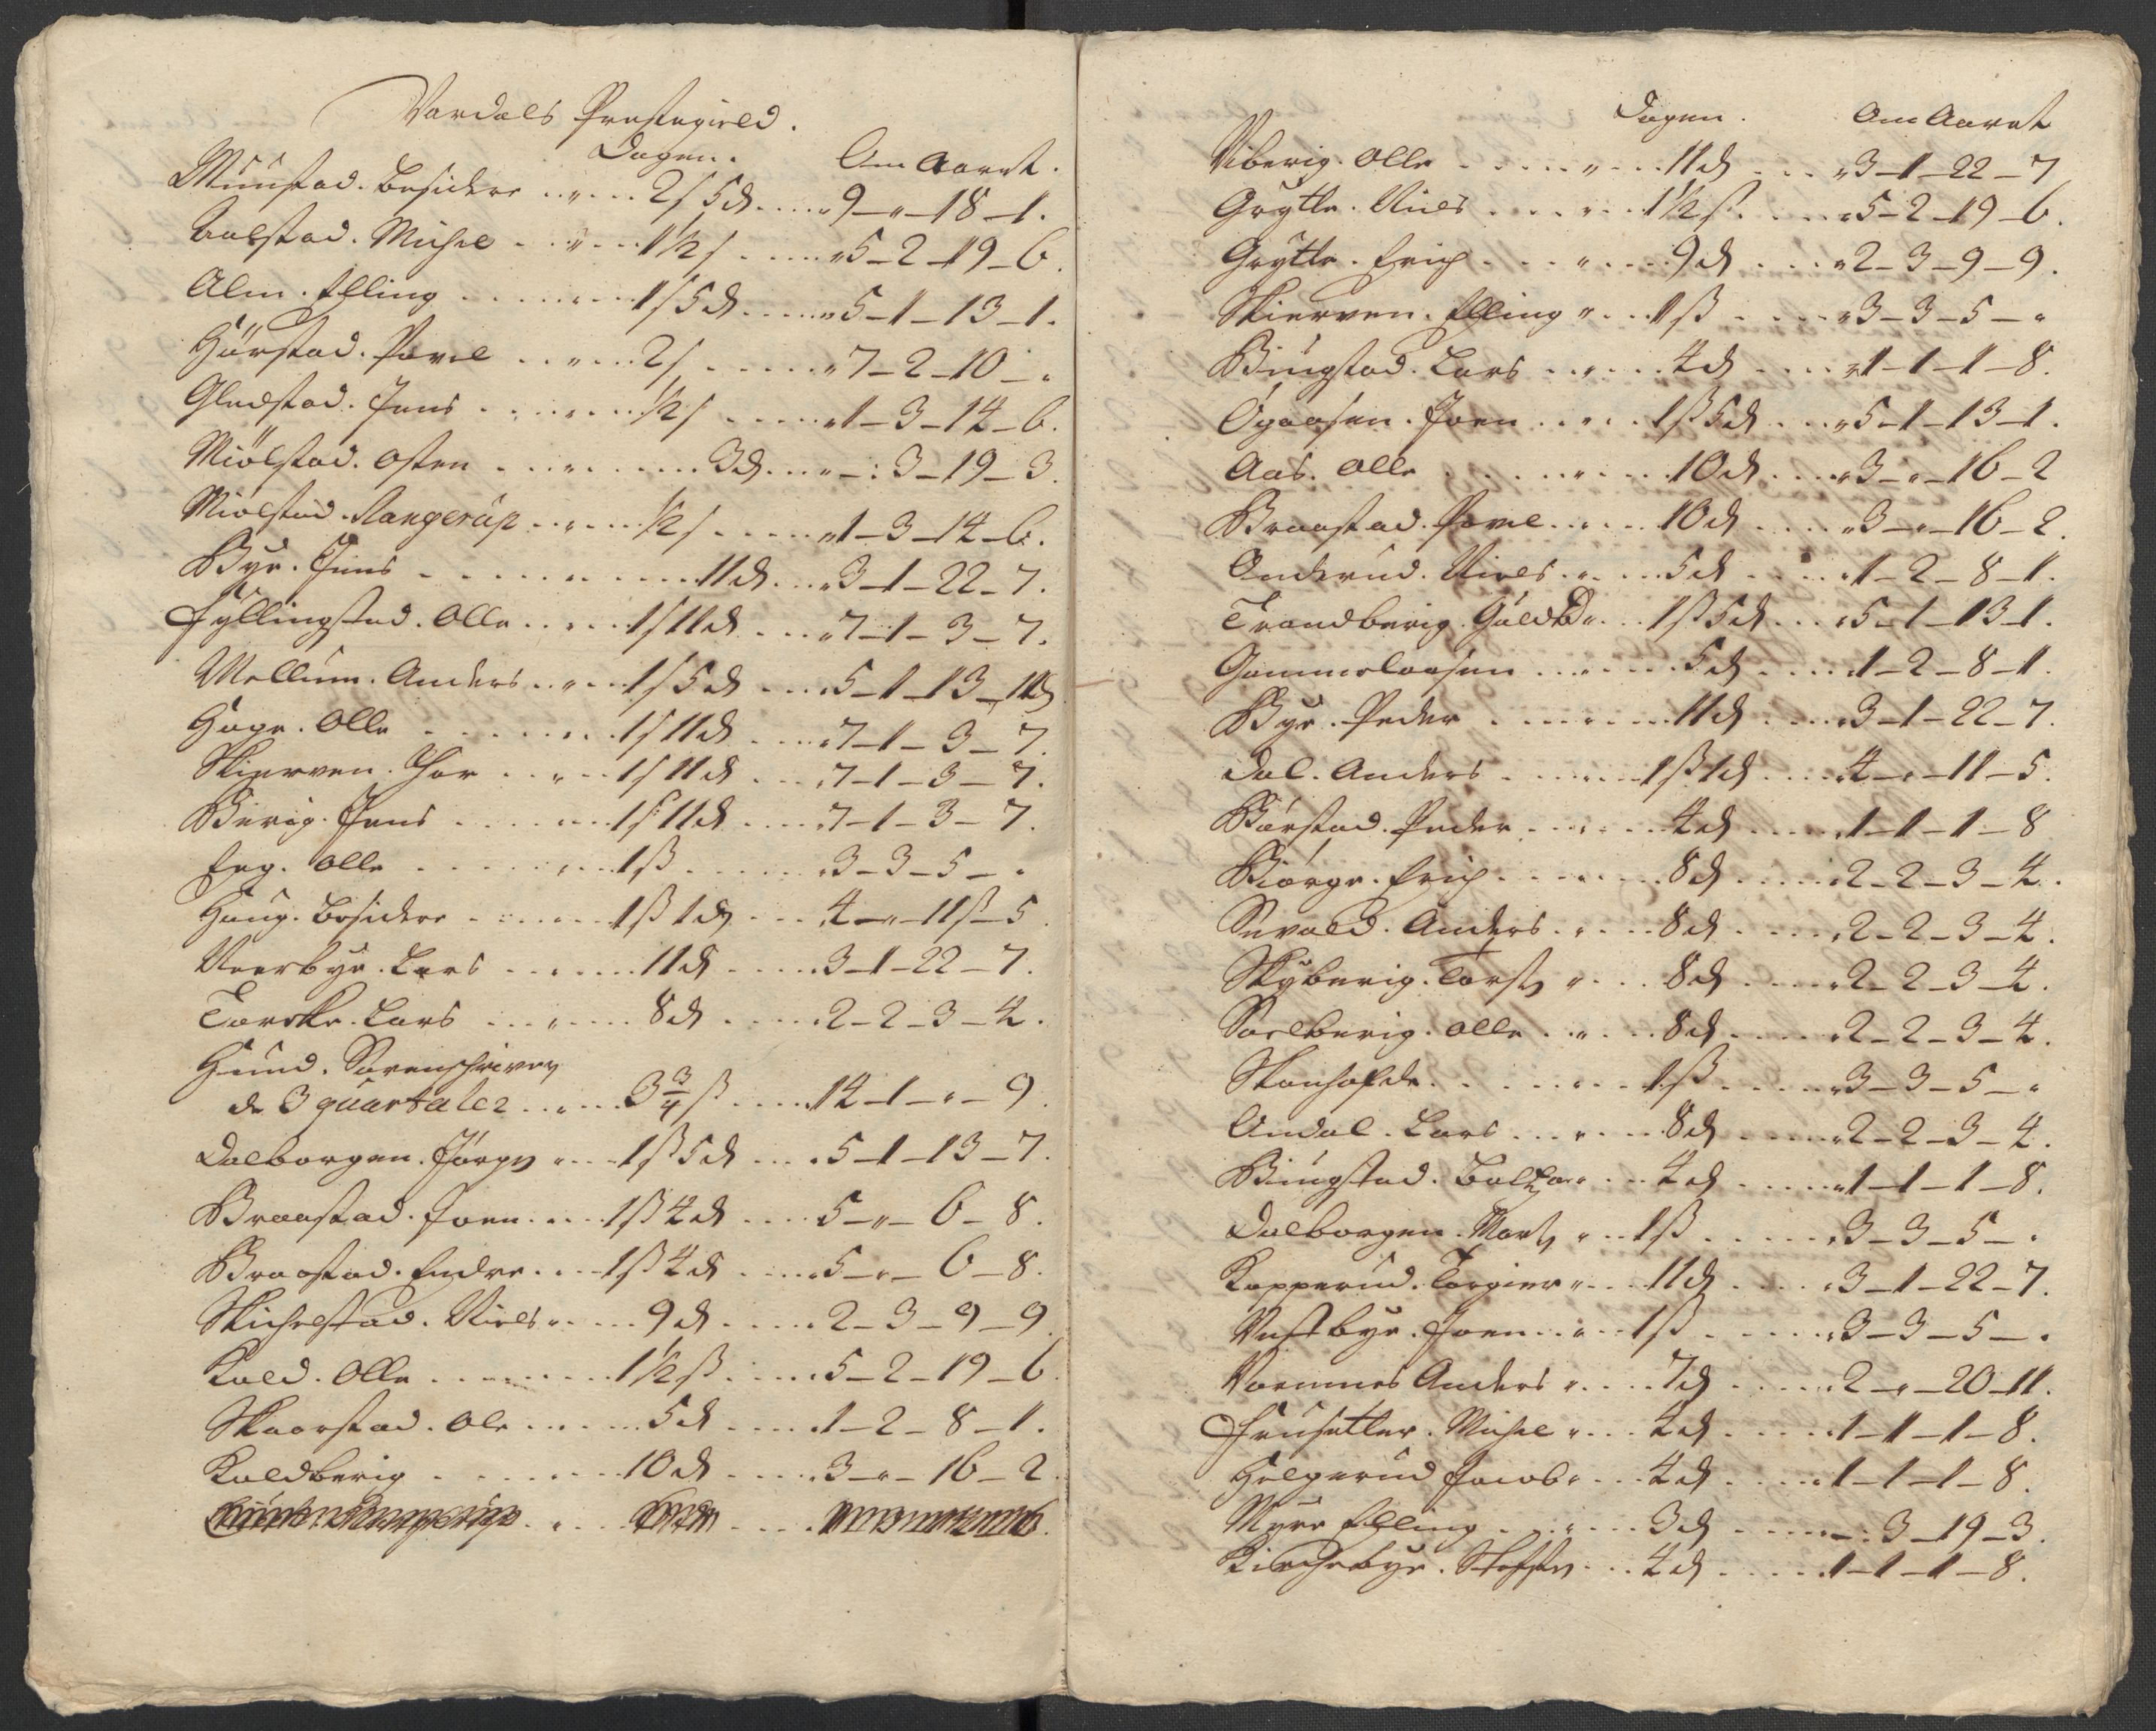 Vardals Præstegield.
Dagen. Om Aaret.
Muustad. besidere . . „ . . . 2 s 5 d . . . . „ 9 – „ – 18 – 1.
Aalstad. Michel . . „ . . . 1½ s . . . . . „ 5 – 2 – 19 – 6.
Alm. Elling . . . . . . . . . 1 s 5 d . . . . „ 5 – 1 – 13 – 1.
Hørstad. Povel . . . „ . . . 2 s . . . . . . „ 7 – 2 – 10 – „
Gledstad. Jens . . . . . . . . ½ s . . . . . „ 1 – 3 – 14 – 6.
Miölstad. Osten . . . „ . . . . . . 3 d . . . „ – : 3 – 19 – 3.
Miölstad. Rangerüp . . „ . . . ½ s . . . . . „ 1 – 3 – 14 – 6.
Bye. Jens . . . . . . . . . . . . 11 d . . . „ 3 – 1 – 22 – 7.
Hyllingstad. Olle . . . „ . . 1 s 11 d . . . . „ 7 – 1 – 3 – 7.
Mellum. Anders . . „ . . . 1 s 5 d . . . . „ 5 – 1 – 13 – 1 d
Hage. Olle . . . . . . . . . 1 s 11 d . . . . „ 7 – 1 – 3 – 7.
Skierven. Thor . . . „ . . . 1 s 11 d . . . „ 7 – 1 – 3 – 7.
Berig. Jens . . . . . . . . . 1 s 11 d . . . . „ 7 – 1 – 3 – 7.
Eeg. Olle . . . . . . . „ . . . 1 ß . . . . . . „ 3 – 3 – 5 – „
Haug. besidere . . . . . . . 1 ß 1 d . . . . 4 – „ – 11 ß – 5
Neerbye. Lars . . . . „ . . . . 11 d . . . . . 3 – 1 – 22 – 7.
Torske. Lars . . . . „ . . . . 8 d . . . . . 2 – 2 – 3 – 4.
Hund. Sorenschriver
de 3 quartaler . . „ . . . 3¾ ß . . . . . 14 – 1 – „ – 9.
Dalborgen. Jørgen „ . . . 1 ß 5 d . . . . 5 – 1 – 13 – 7.
Braastad. Joen . . . . 1 ß 4 d . . . . 5 – „ – 6 – 8.
Braastad. Endre . . . 1 ß 4 d . . . . „ 5 – „ – 6 – 8.
Skichelstad. Niels „ . . . . 9 d . . . . . 2 – 3 – 9 – 9
Kold. Olle . . . . . . . . . 1½ ß . . . . . 5 – 2 – 19 – 6.
Skaarstad. Ole . . . . . . . 5 d . . . . . 1 – 2 – 8 – 1.
Koldberig . . . . . . . . 10 d . . . . . 3 – „ – 16 – 2.
Dagen. Om Aaret
Viberig. Olle . . . . . . „ . . . 11 d . . . . „ 3 – 1 – 22 – 7
Grytte. Niels . . . . . „ . . . 1½ ß . . . . . „ 5 – 2 – 19 – 6.
Grytte. Erich . . . . „ . . . . 9 d . . . . „ 2 – 3 – 9 – 9.
Skierven. Elling „ . . . 1 ß . . . . . „ 3 – 3 – 5 – „
Biugstad. Lars . . „ . . . 4 d . . . . . „ 1 – 1 – 1 – 8.
Ögaasen. Joen . . . „ . . 1 ß 5 d . . . . „ 5 – 1 – 13 – 1.
Aas. Olle . . . . . . . „ . . . 10 d . . . . „ 3 – „ – 16 – 2
Braastad. Povel . . „ . . . 10 d . . . . . „ 3 – „ – 16 – 2.
Onderud. Niels . „ . . . . 5 d . . . . . „ 1 – 2 – 8 – 1.
Trandberig. Guldb „ . . . 1 ß 5 d . . . „ 5 – 1 – 13 – 1.
Gammelaasen . . . „ . . . . 5 d . . . . . „ 1 – 2 – 8 – 1.
Bye. Peder . . . . . . „ . . . 11 d . . . . „ 3 – 1 – 22 – 7.
Dal. Anders . . . . . „ . . . 1 ß 1 d . . . . „ 4 – „ – 11 – 5.
Børstad. Peder . . . „ . . . 4 d . . . . . „ 1 – 1 – 1 – 8
Biørge. Erich . . . . „ . . . . 8 d . . . . . „ 2 – 2 – 3 – 4.
Sevald. Anders . „ . . . 8 d . . . . . „ 2 – 2 – 3 – 4.
Skyberig. Torsten „ . . . 8 d . . . . „ 2 – 2 – 3 – 4.
Soelberig. Olle . . „ . . . 8 d . . . . „ 2 – 2 – 3 – 4.
Stenhofde . . . . . . . „ . . 1 ß . . . . . „ 3 – 3 – 5 – „
Undal. Lars . . . „ . . . 8 d . . . . . „ 2 – 2 – 3 – 4.
Biugstad. Baltzar „ . . . 4 d . . . . . „ 1 – 1 – 1 – 8.
Dalborgen. Morten „ . . 1 ß . . . . . „ 3 – 3 – 5 – „
Kopperud. Torgier „ . . . 11 d . . . . „ 3 – 1 – 22 – 7.
Vestbye. Joen . . „ . . . 1 ß . . . . . „ 3 – 3 – 5 – „
Vormnes Anders „ . . . . 7 d . . . . . „ 2 – „ – 20 – 11.
Frusetter. Michel „ . . . 4 d . . . . . 1 – 1 – 1 – 8.
Helgerud Jacob „ . . . 4 d . . . . . „ 1 – 1 – 1 – 8.
Myre Elling . . . . „ . . . . 3 d . . . . . „ – : 3 – 19 – 3.
Kirchebye. Steffen . . . 4 d . . . . . „ 1 – 1 – 1 – 8.